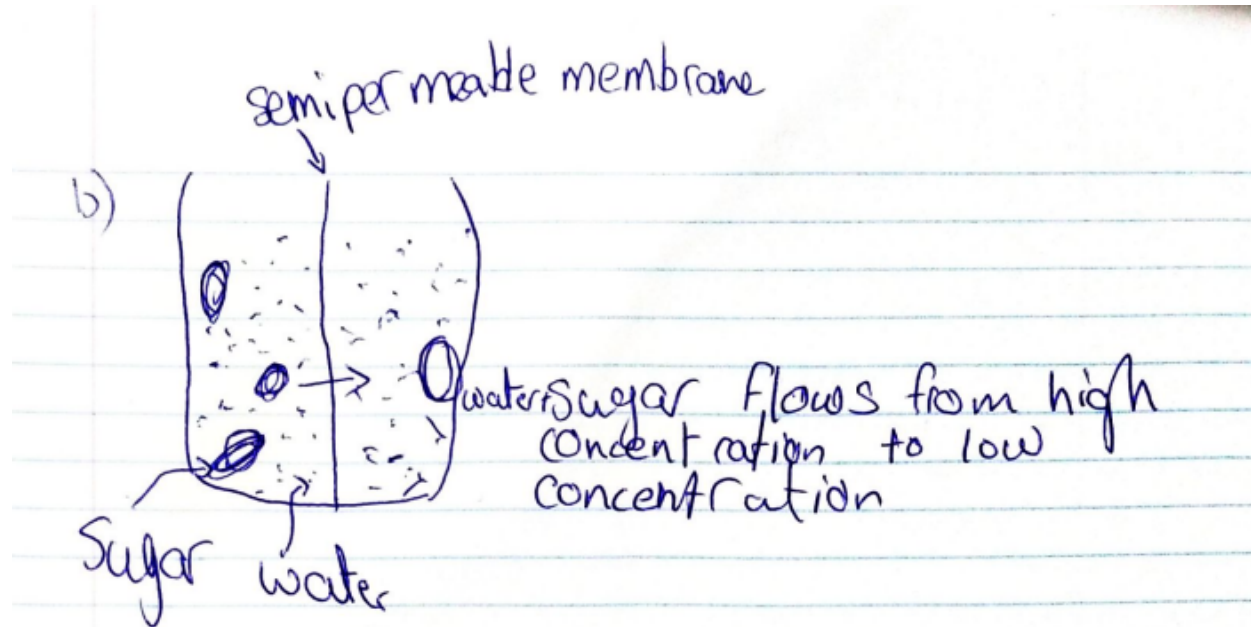 semipermeable membrane
b)
water+sugar flows from high
concentration to low
concentration
Sugar
water